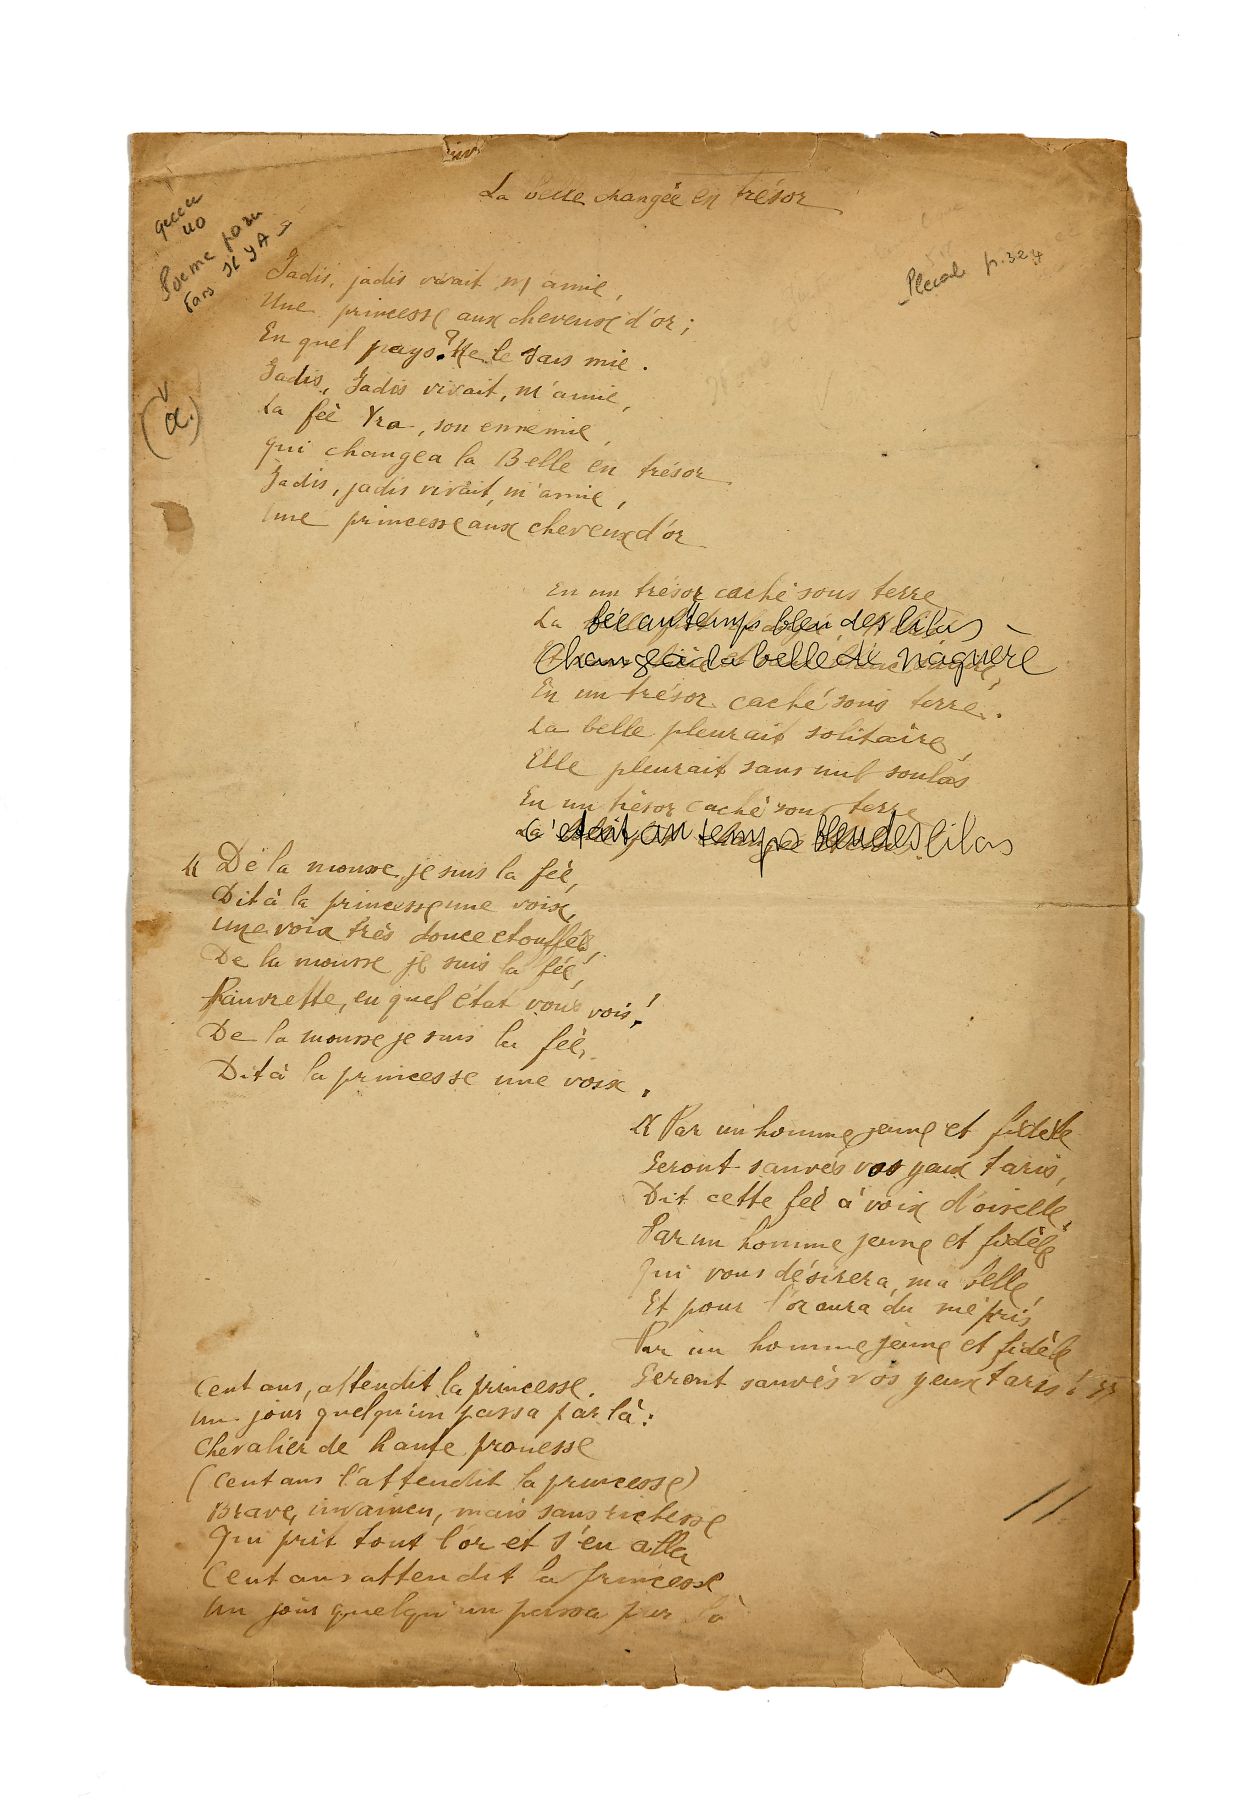 La belle changée en trésor
Poeme pour
Pleiad p. 324
(α.)
Jadis, jadis vivait, m'amie,
Une princesse aux cheveux d'or ;
En quel pays ? Ne le sais mie.
Jadis, Jadis vivait, m'amie,
La feé Yra, son ennemie,
Qui changea la Belle en trésor
Jadis, jadis vivait, m'amie,
Une princesse aux cheveux d'or
En un trésor caché sous terre
La fée au temps bleu des lilas
Changea la belle de naguère
En un trésor caché sous terre.
La belle pleurait solitaire,
Elle pleurait sans nul soulas
En un trésor caché sous terre
C'était au temps bleu des lilas
« De la mousse, je suis la feé,
Dit à la princesse une voix,
Une voix très douce etouffée,
De la mousse je suis la feé,
Pauvrette, en quel état vous vois !
De la mousse je suis la feé,
Dit à la princesse une voix.
« Par un homme jeune et fidèle
Seront sauvés vos yeux taris,
Dit cette feé à voix d'oiselle,
Par un homme jeune et fidèle
Qui vous désirera, ma belle,
Et pour l'or aura du mépris,
Par un homme jeune et fidèle
Seront sauvés vos yeux taris ! »
Cent ans, attendit la princesse.
Un jour quelqu'un passa par là :
Chevalier de haute prouesse
(Cent ans l'attendit la princesse)
Brave, invaincu, mais sans richesse
Qui prit tout l'or et s'en alla
Cent ans attendit la princesse
Un jour quelqu'un passa par là